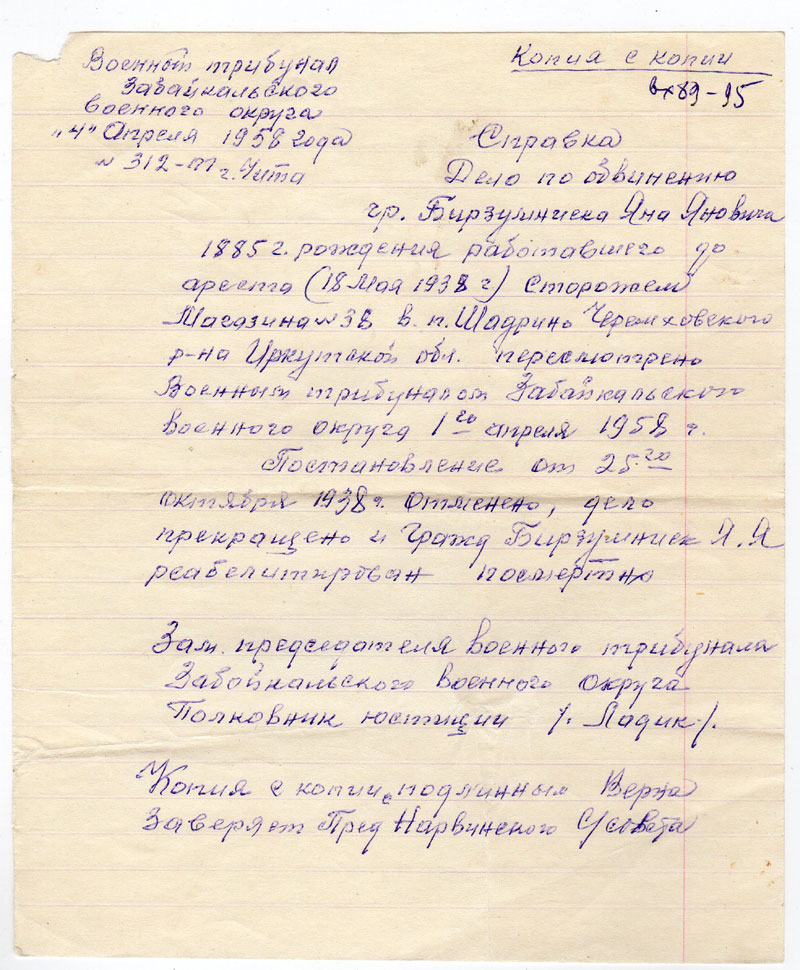 Военный трибунал
Забайкальского
военного округа
"4" Апреля 1958 года
N 312-П г. Чита
Копия с копии
вх89-95
Справка
Дело по обвинению
гр. Бирзумниека Яна Яновича
1885 г. рождения работавшего до
ареста (18 Мая 1938 г) Сторожем
Магазина N 38 в п. Шадрино Черемховского
р-на Иркутской обл. пересмотрено
Военным трибуналом Забайкальского
военного округа 1го апреля 1958 г.
Постановление от 25.го
октября 1938 г. отменено, дело
прекращено и гражд Бирзумниек Я.Я
реабелитирован посмертно
Зам. председателя военного трибунала
Забайкальского военного округа
Полковник юстиции /. Ладик /.
Копия с копии с подлинным Верна
Заверяет Пред Нарвинского С/совета